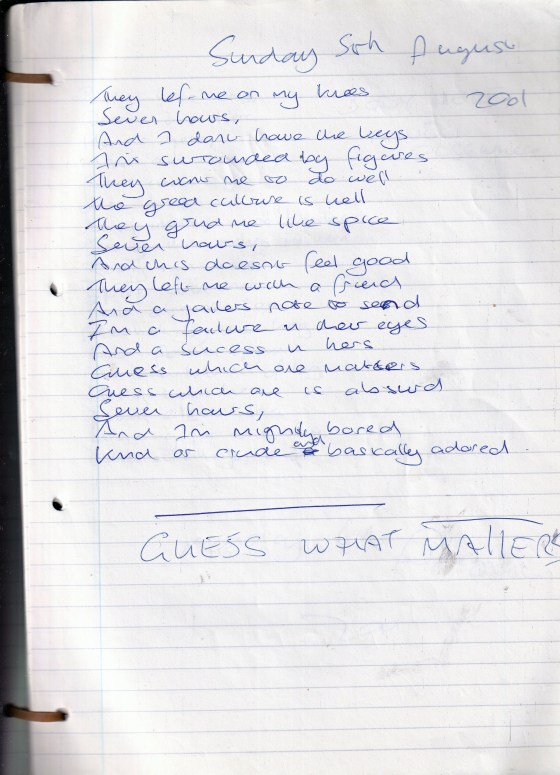 Sunday 5th August
2001
They left me on my knees
Seven hours,
And I don't have the keys
I'm surrounded by figures
They want me to do well
the greed culture is hell
They grind me like spice
Seven hours,
And this doesn't feel good
They left me with a friend
And a jailers note to send
I'm a failure in their eyes
And a sucess in hers
Guess which one matters
Guess which one is absurd
Seven hours,
And I'm mightily bored
Kind or crude and basically adored.
GUESS WHAT MATTERS